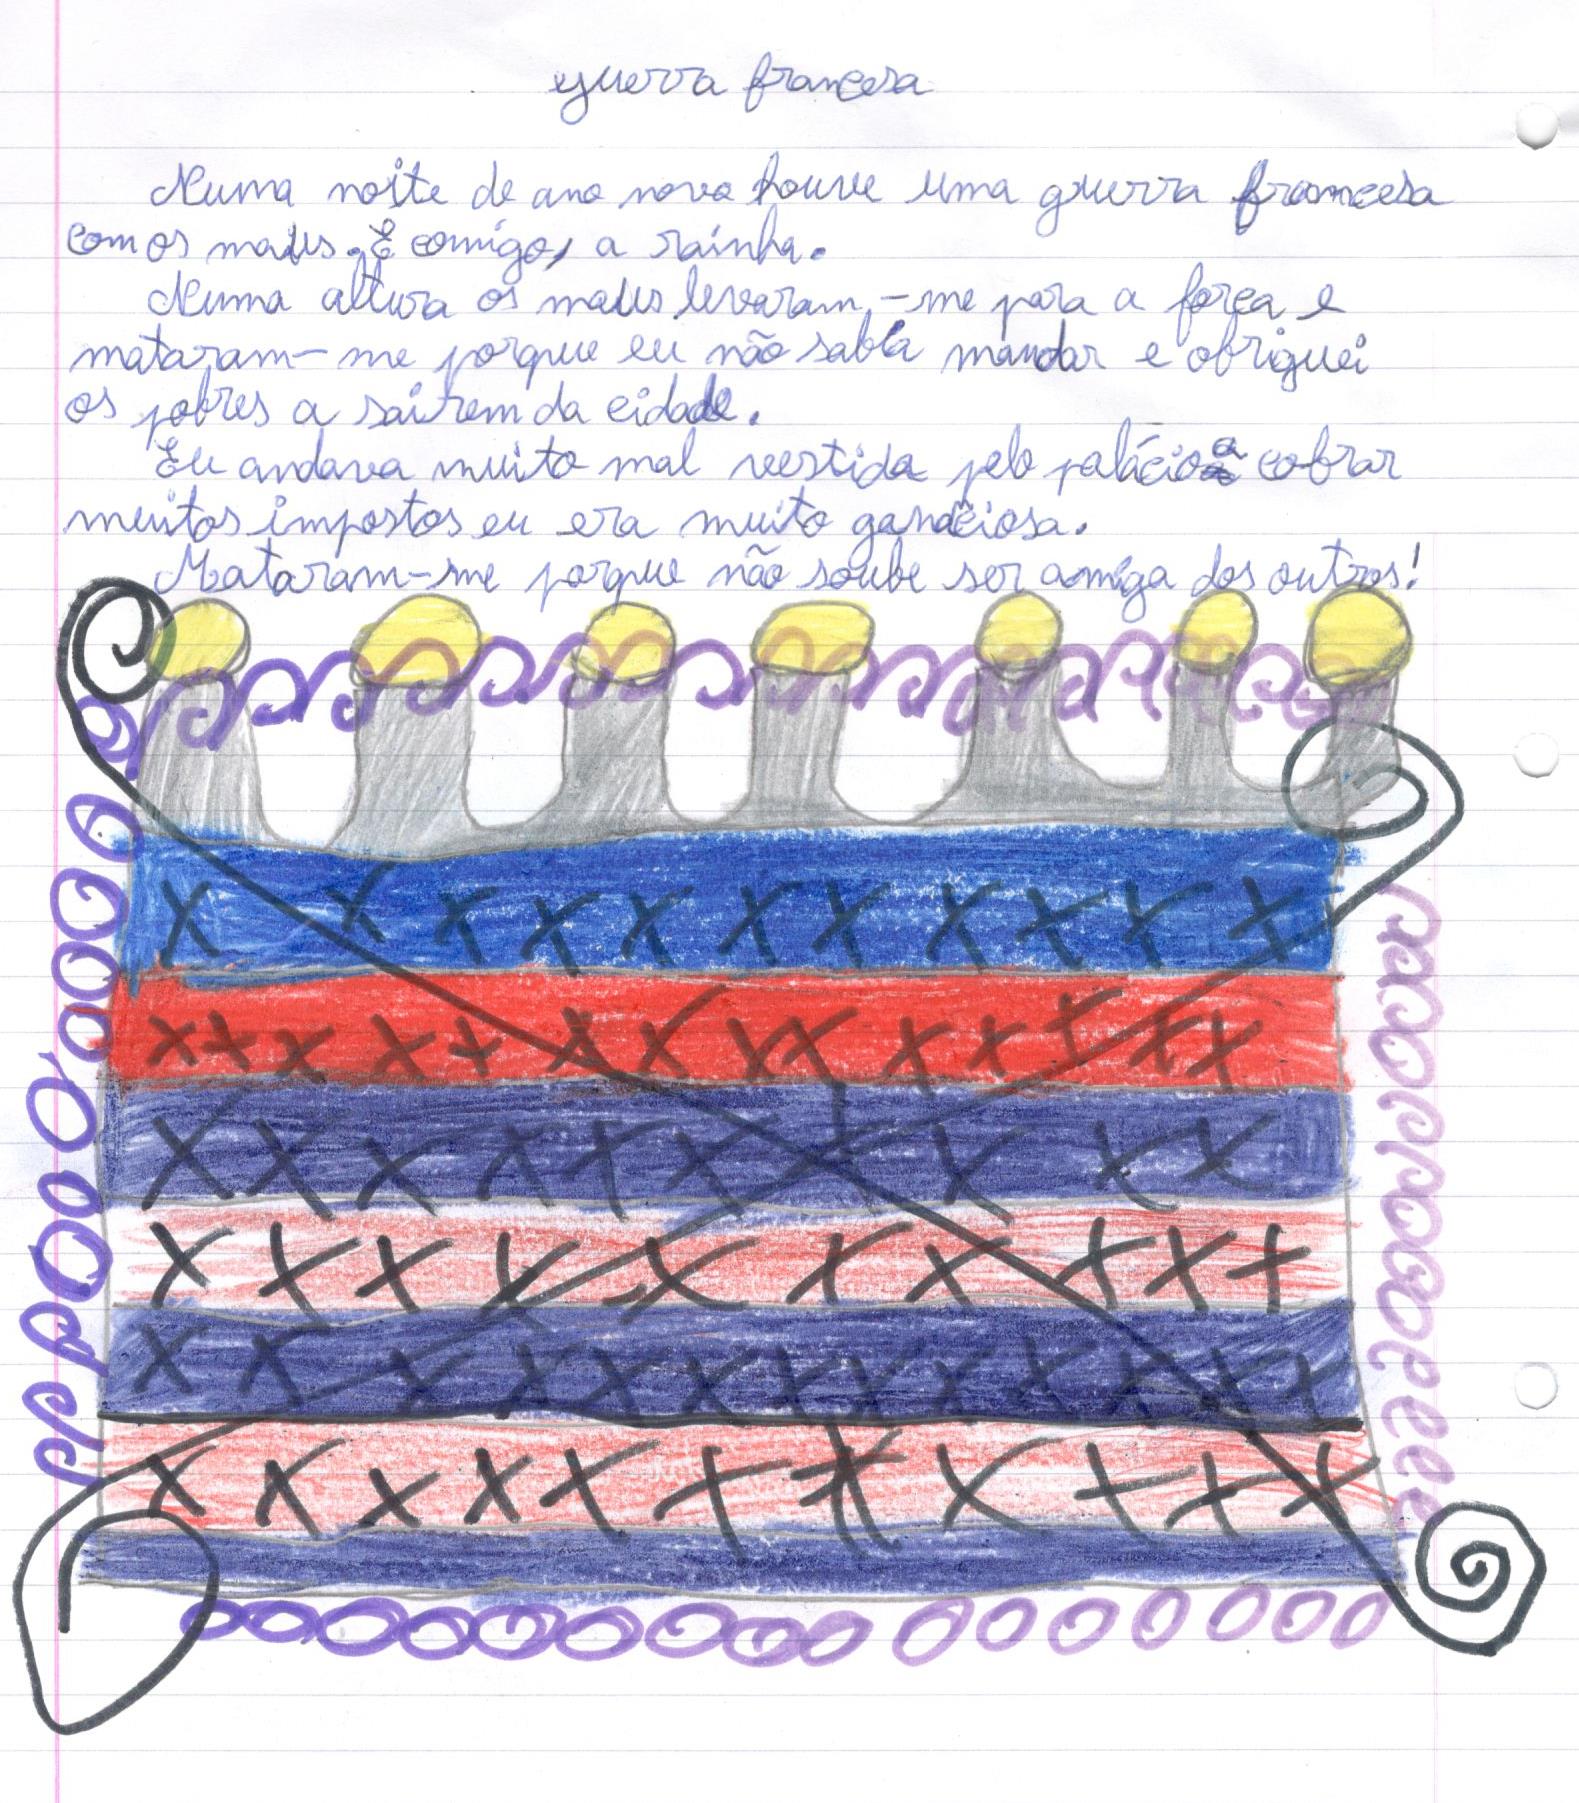 guerra francesa
Numa noite de ano novo houve uma guerra francesa
com os maus. E comigo, a rainha.
Numa altura os maus levaram-me para a forca e
mataram-me porque eu não sabia mandar e obriguei
os pobres a sairem da cidade.
Eu andava muito mal vestida pelo palácio a cobrar
muitos impostos eu era muito ganáciosa.
Mataram-me porque não soube ser amiga dos outros!